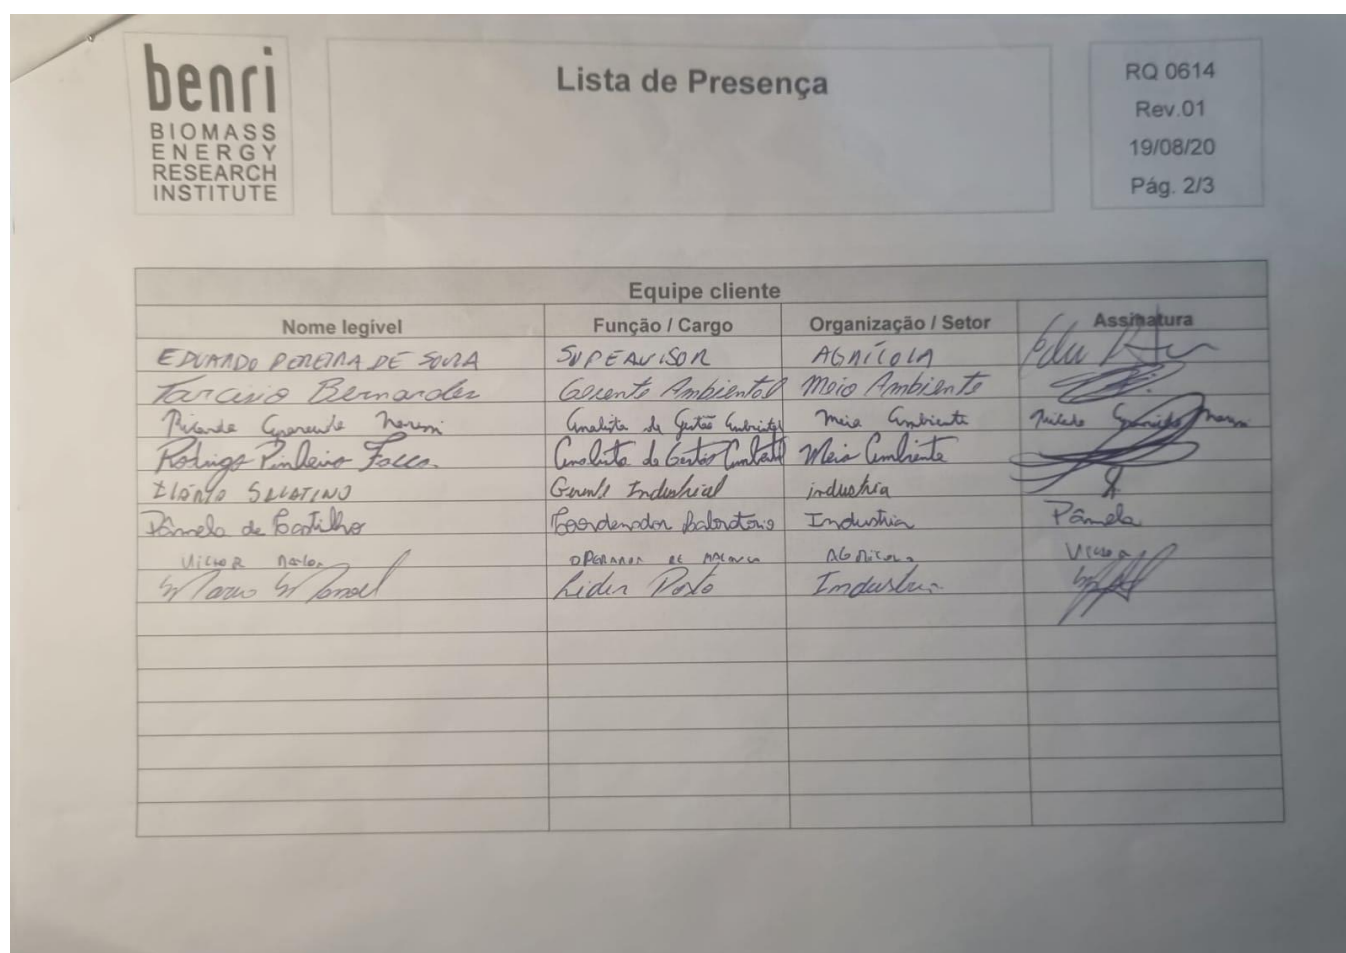 benri
BIOMASS
ENERGY
RESEARCH
INSTITUTE
Lista de Presença
RQ 0614
Rev.01
19/08/20
Pág. 2/3
Equipe cliente
Nome legivel Função / Cargo Organização / Setor Assinatura
EDUARDO PEREIRA DE SOUZA SUPERVISOR AGRÍCOLA
Tarcisio Bernardes Gerente Ambiental Meio Ambiente
Ricardo Analista de Gestão Ambiental Meio Ambiente
Rodrigo Pinheiro Analista de Gestão Ambiental Meio Ambiente
Gerente Industrial industria
Pâmela de Castilho Coordenador Laboratório Industria Pâmela
VICTOR OPERADOR DE AGRICOLA VICTOR
Lider Industria